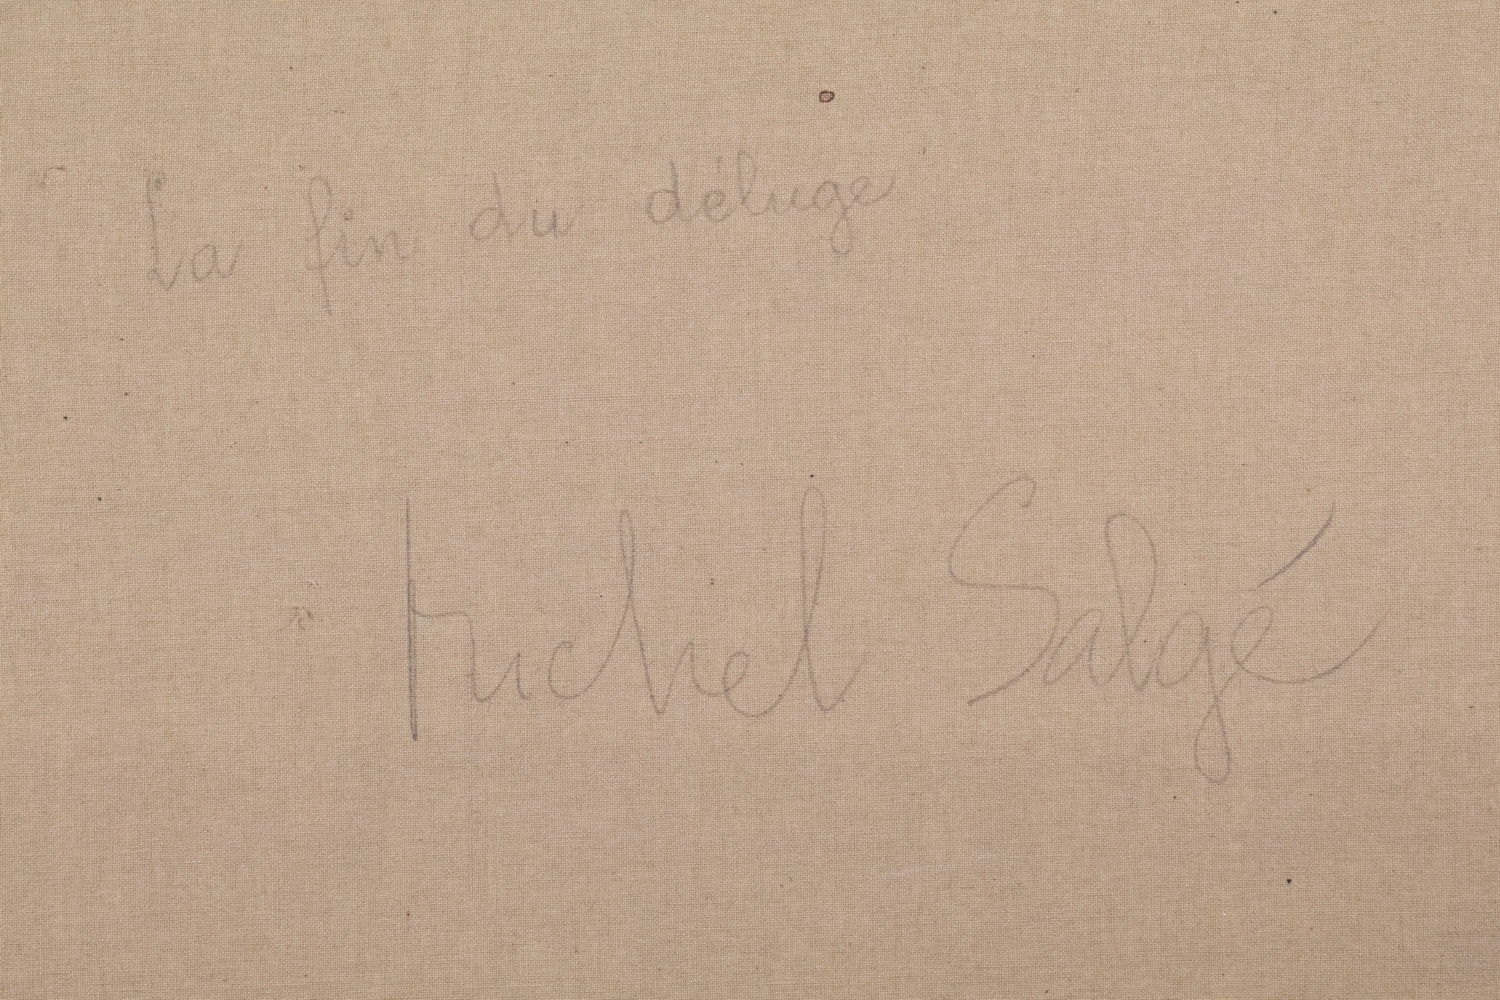 La fin du déluge
Michel Salgé